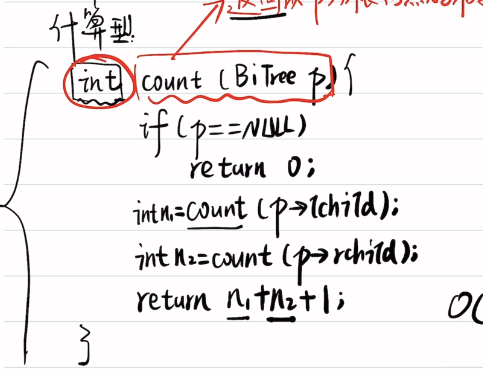 计算型:
int count (BiTree p) {
if (p==NULL)
return 0;
int n₁=count (p→lchild);
int n₂=count (p→rchild);
return n₁+n₂+1;
}